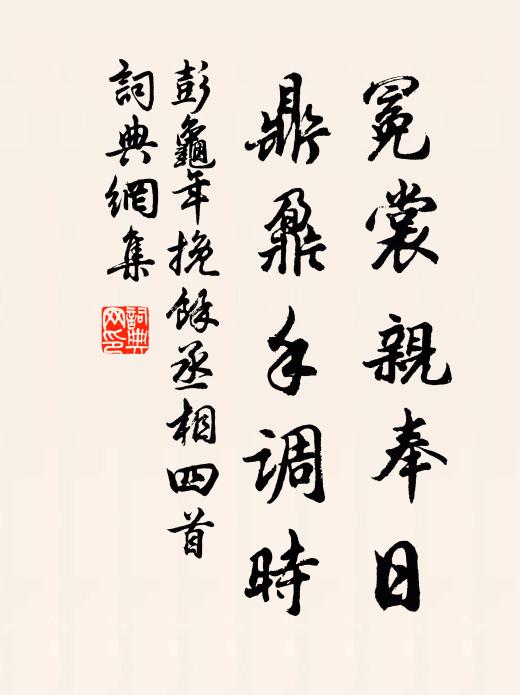 冕裳親奉日
鼎鼐手調時
彭龜年挽餘丞相四首
詞典網集
詞典网印